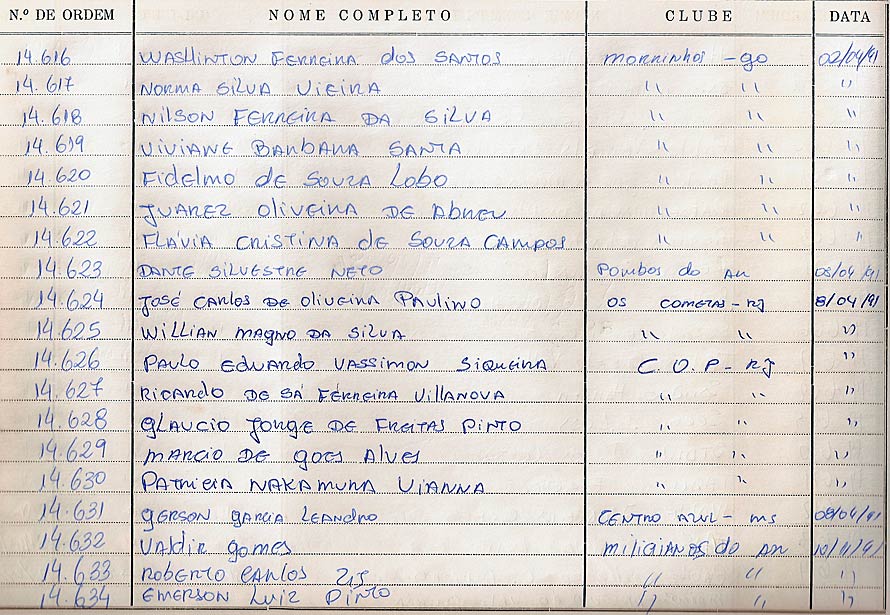 N.º DE ORDEM NOME COMPLETO CLUBE DATA
14.616 WASHINTON FERREIRA dos SANTOS MORRINHOS - GO 02/04/91
14.617 NORMA SILVA VIEIRA " " "
14.618 NILSON FERREIRA DA SILVA " " "
14.619 VIVIANE BARBARA SANTA " " "
14.620 FIDELMO de SOUZA LOBO " " "
14.621 JUAREZ OLIVEIRA DE ABREU " " "
14.622 FLÁVIA CRISTINA de SOUZA CAMPOS " " "
14.623 DANTE SILVESTRE NETO POMBOS do AR 08/04/91
14.624 JOSÉ CARLOS DE OLIVEIRA PAULINO OS COMETAS - RJ 8/04/91
14.625 WILLIAN MAGNO DA SILVA " " "
14.626 PAULO EDUARDO VASSIMON SIQUEIRA C.O.P - RJ "
14.627 RICARDO DE SÁ FERREIRA VILLANOVA " " "
14.628 GLAUCIO JORGE DE FREITAS PINTO " " "
14.629 MARCIO DE GOES ALVES " " "
14.630 PATRICIA NAKAMURA VIANNA " " "
14.631 GERSON GARCIA LEANDRO CENTRO AZUL - MS 08/04/91
14.632 VALDIR GOMES MILICIANOS do AR 10/11/91
14.633 ROBERTO CARLOS " " "
14.634 EMERSON LUIZ PINTO " " "